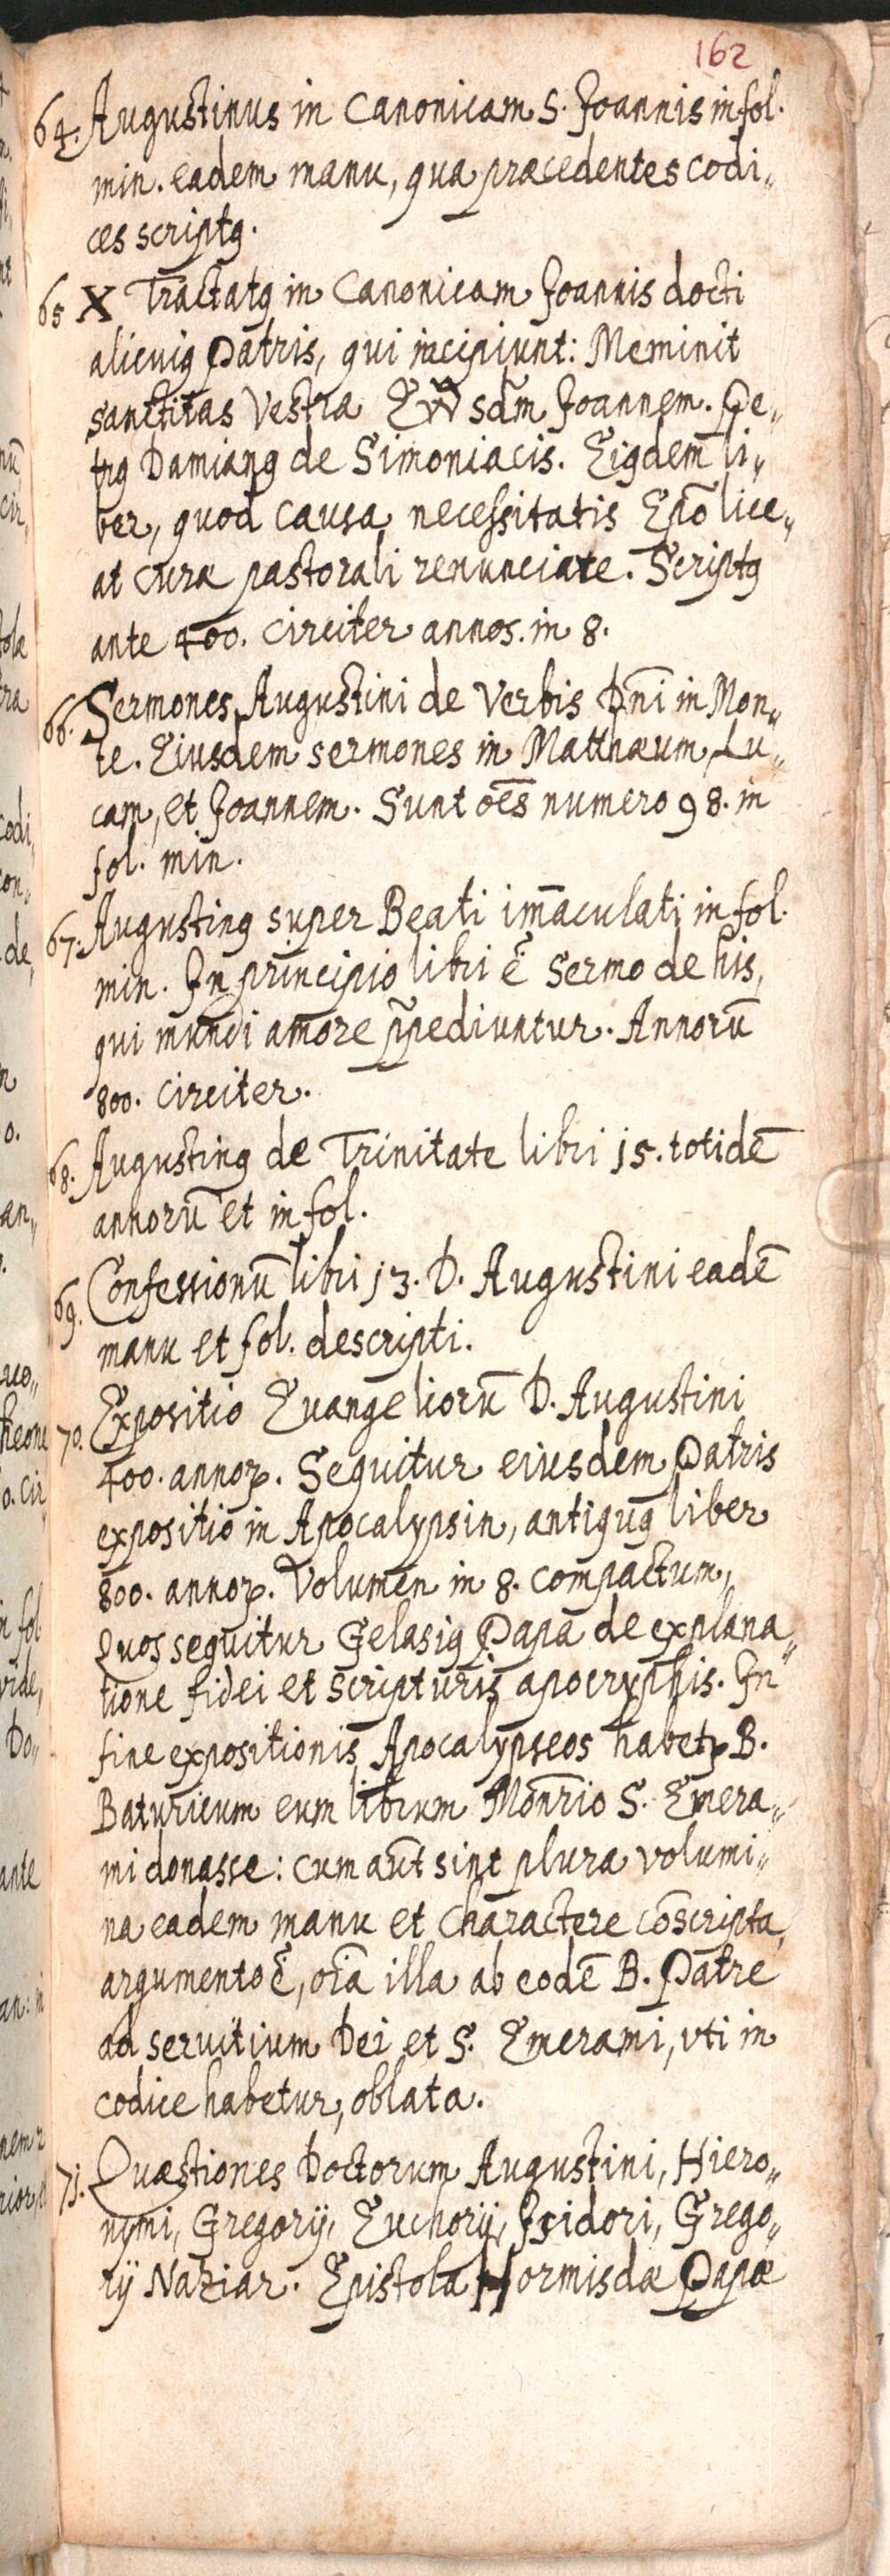 162
64. Augustinus in Canonicam S. Joannis in fol.
min. eadem manu, qua præcedentes codi„
ces scriptꝯ.
65 X Tractatꝯ in Canonicam Joannis docti
alicuiꝯ Patris, qui incipiunt: Meminit
sanctitas Vestra sdm̄ Joannem. Pe„
trꝯ Damianꝯ de Simoniacis. Eiꝯdem li„
ber, quod causa necessitatis Ep̄o lice„
at curæ pastorali renunciare. Scriptꝯ
ante 400. circiter annos. in 8.
66. Sermones Augustini de Verbis Dn̄i in Mon„
te. Eiusdem sermones in Matthæum, Lu„
cam, et Joannem. Sunt oēs numero 98. in
fol. min.
67. Augustinꝯ super Beati im̄aculati in fol.
min. In principio libri ē Sermo de his,
qui mundi amore p̄pediuntur. Annorū
800. circiter.
68. Augustinꝯ de Trinitate libri 15. totidē
annorū et in fol.
69. Confessionū libri 13. D. Augustini eadē
manu et fol. descripti.
70. Expositio Euangeliorū D. Augustini
400. annoꝝ. Sequitur eiusdem Patris
expositio in Apocalypsin, antiquꝯ liber
800. annoꝝ. Volumen in 8. compactum,
Quos sequitur Gelasiꝯ Papa de explana„
tione fidei et scripturis apocryphis. In
fine expositionis Apocalypseos habetꝝ B.
Baturicum eum librum Monr̄io S. Emera„
mi donasse: cum aūt sint plura volumi„
na eadem manu et charactere cōscripta,
argumento ē, oīa illa ab eodē B. Patre
ad seruitium Dei et S. Emerami, vti in
codice habetur, oblata.
71. Quæstiones Doctorum Augustini, Hiero„
nymi, Gregorij, Euchorij, Isidori, Grego„
rij Naziar. Epistola Hormisdæ Papæ